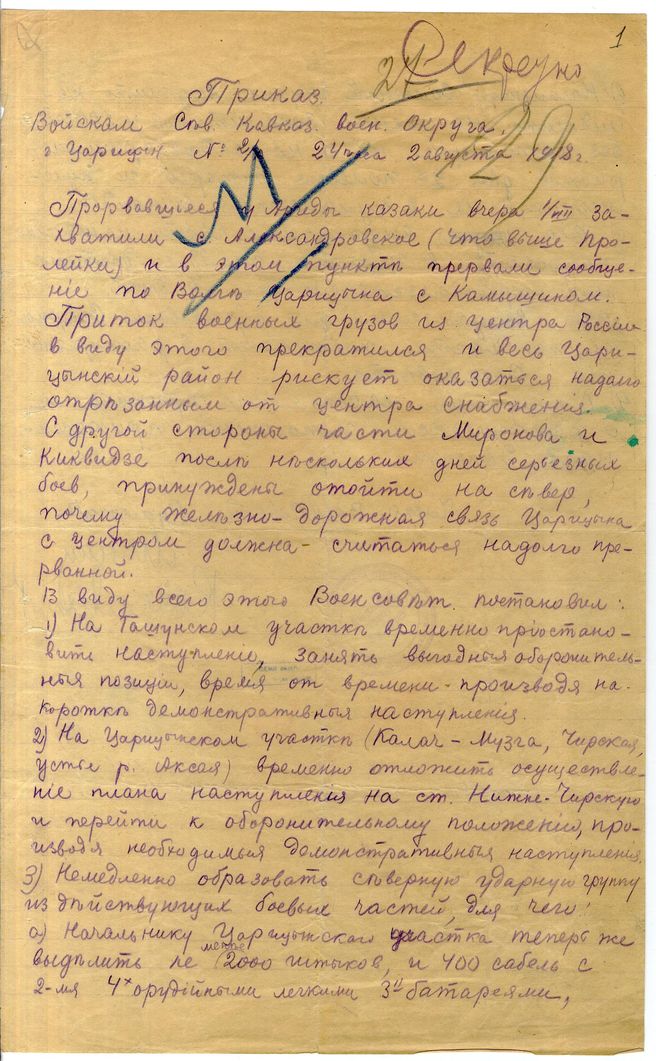 1
Секретно
24
29
Приказ.
Войскам Сѣв. Кавказ. воен. Округа.
г. Царицын № 2/ 24 часа 2 августа 1918 г.
Прорвавшиеся у казаки вчера 1/VIII за-
хватили с. Александровское (что выше Про-
лейки) и в этом пунктѣ прервали сообще-
ніе по Волгѣ Царицына с Камышином.
Приток военных грузов из центра России
в виду этого прекратился и весь Цари-
цынскій район рискует оказаться надолго
отрѣзанным от центра снабжения.
С другой стороны части Миронова и
Киквидзе послѣ нѣскольких дней серьезных
боев, принуждены отойти на сѣвер,
почему желѣзно-дорожная связь Царицына
с центром должна считаться надолго пре-
рванной.
В виду всего этого Военсовѣт. постановил:
1) На Гашунском участкѣ временно пріостано-
вить наступленіе, занять выгодныя оборонитель-
ныя позиціи, время от времени производя на-
короткѣ демонстративныя наступленія.
2) На Царицынском участкѣ (Калач – Музга, Чирская,
устье р. Аксая) временно отложить осуществле-
ніе плана наступления на ст. Нижне-Чирскую
и перейти к оборонительному положенію, про-
изводя необходимыя демонстративныя наступленія.
3) Немедленно образовать сѣверную ударную группу
из дѣйствующих боевых частей, для чего:
а) Начальнику Царицынского участка теперь же
выдѣлить не менѣе 2000 штыков, и 400 сабель с
2-мя 4х орудійными легкими 3" батареями,